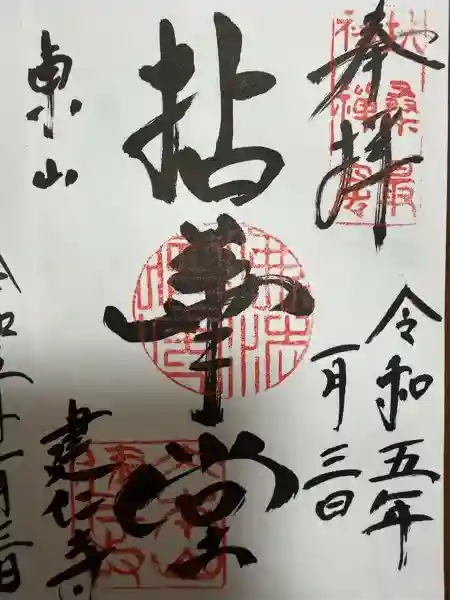 奉拝
扶桑最初禅窟
令和五年
一月三日
拈華堂
東山
建仁寺
令和五年一月三日